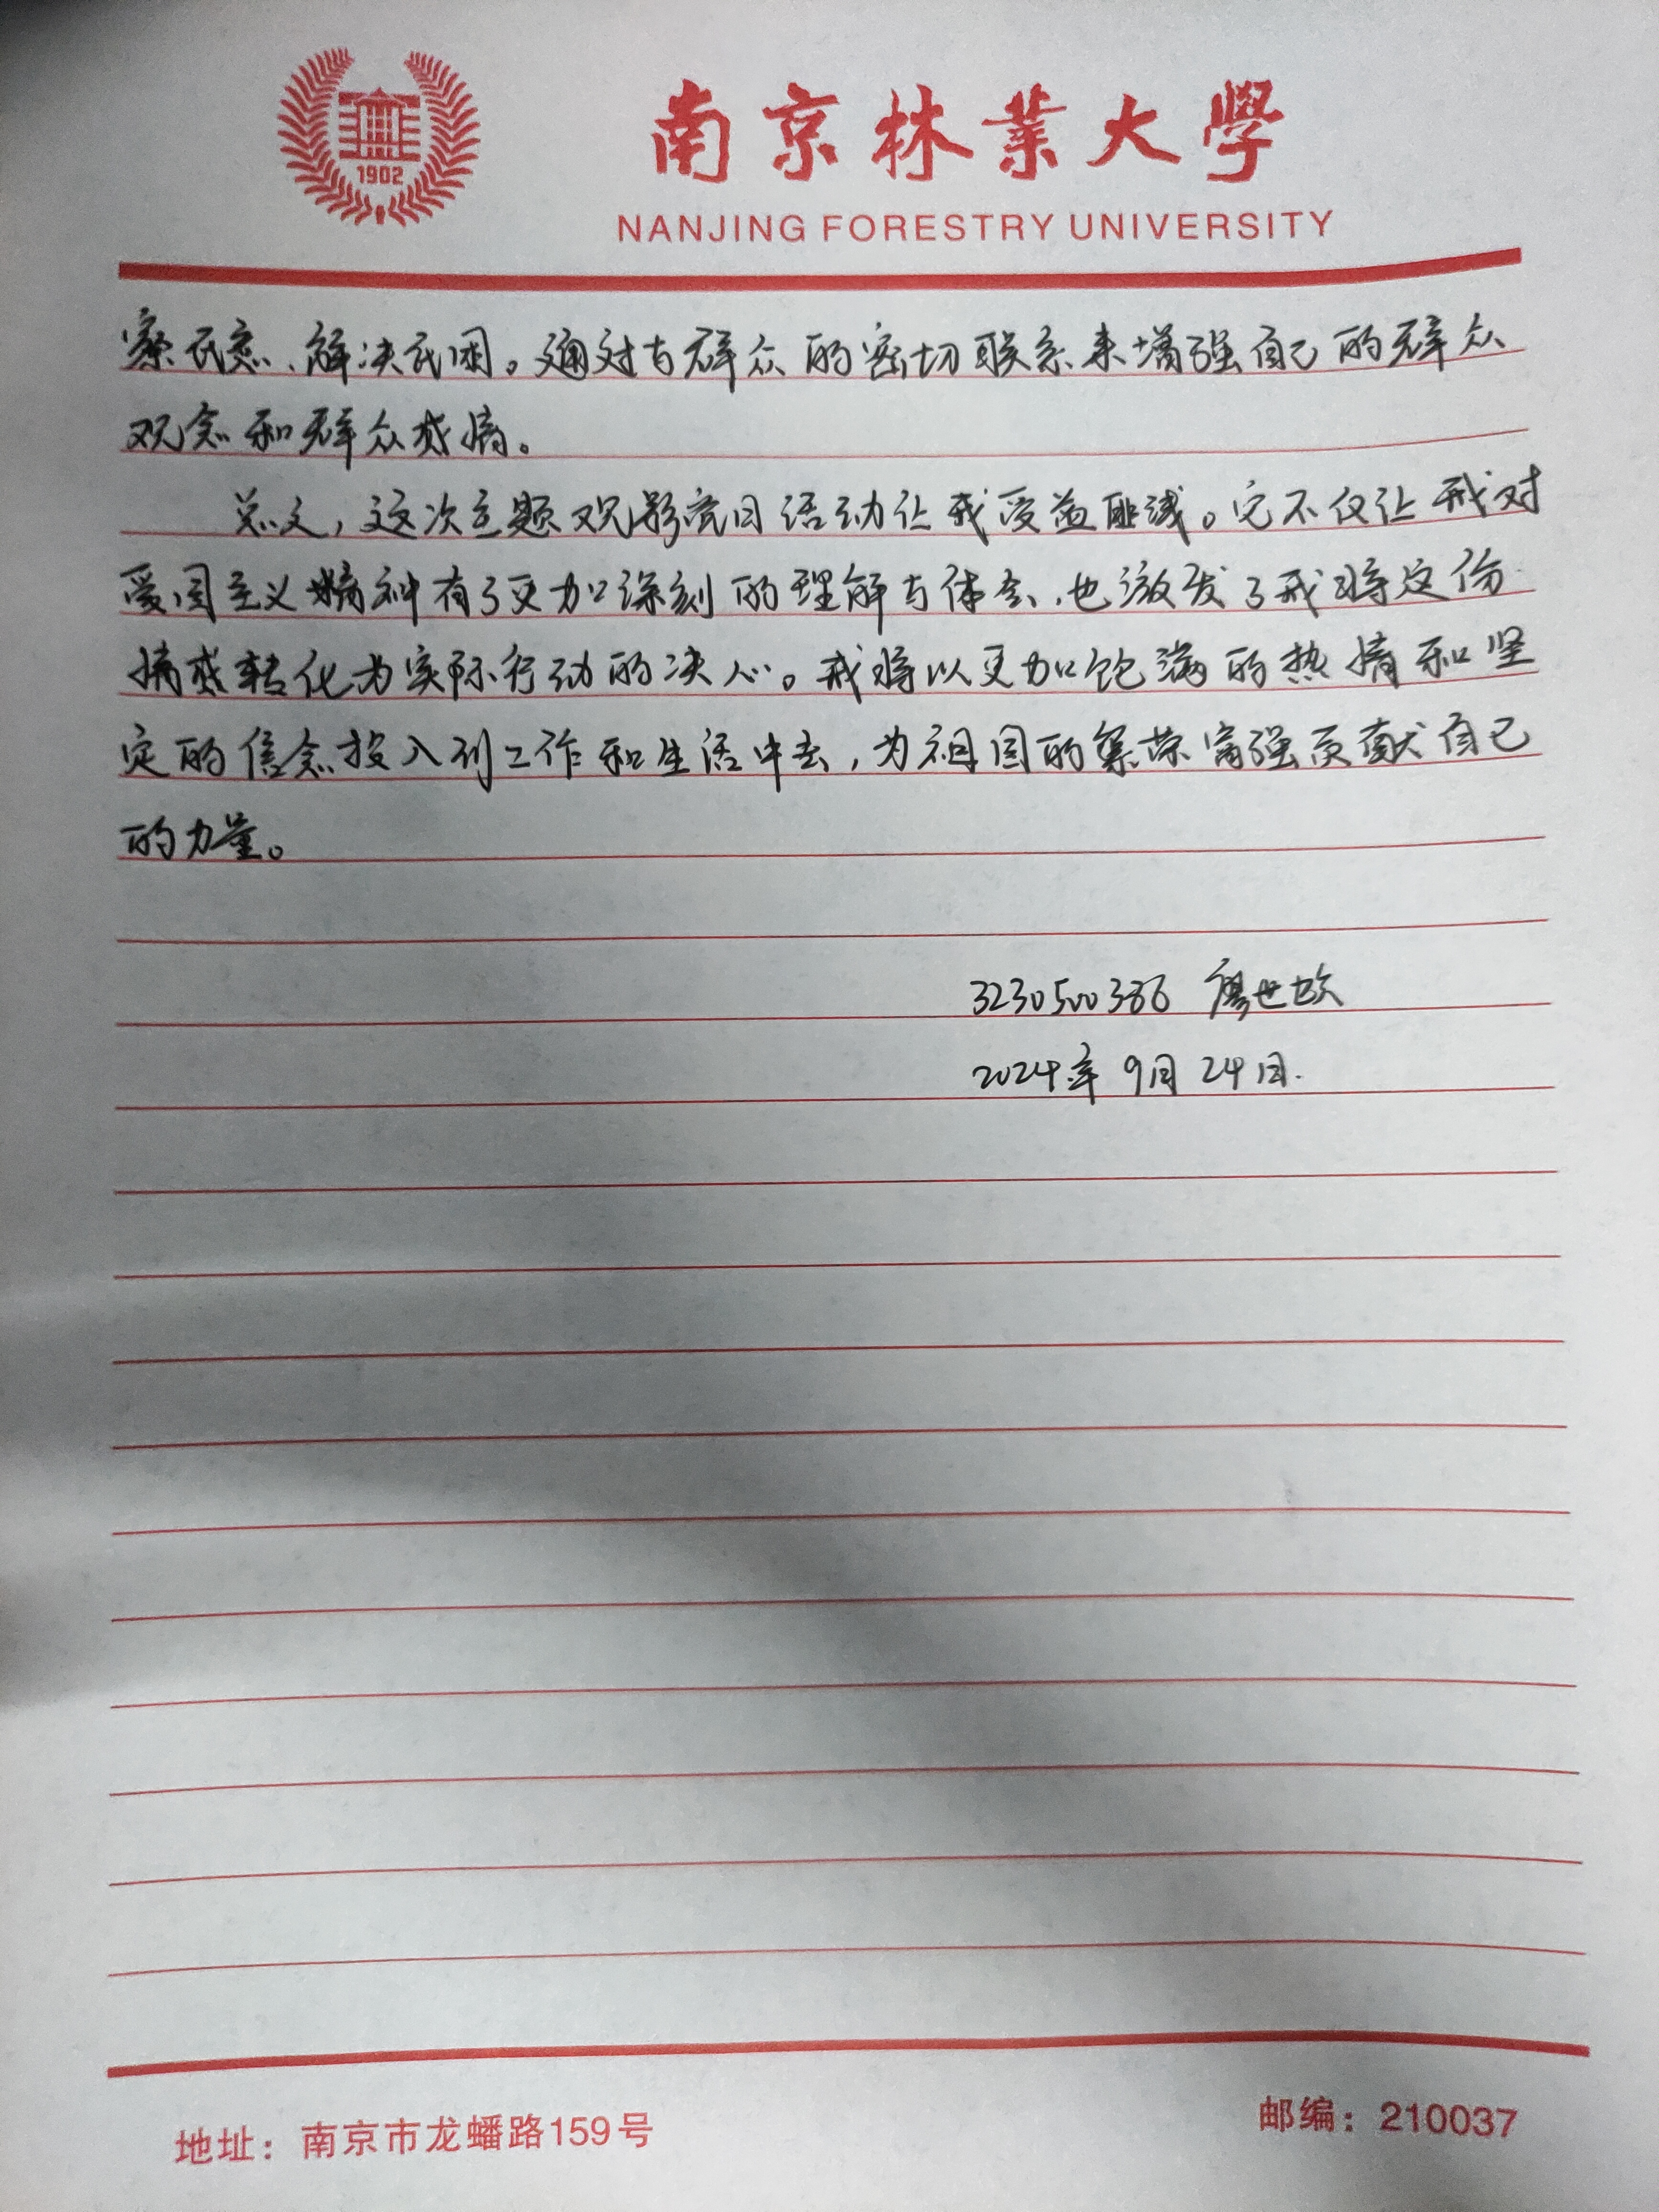 1902
南京林業大學
NANJING FORESTRY UNIVERSITY
察民意、解决民困。通过与群众的密切联系来增强自己的群众
观念和群众感情。
总之,这次主题观影党日活动让我受益匪浅。它不仅让我对
爱国主义精神有了更加深刻的理解与体会,也激发了我将这份
情感转化为实际行动的决心。我将以更加饱满的热情和坚
定的信念投入到工作和生活中去,为祖国的繁荣富强贡献自己
的力量。
3230500386 廖世欣
2024年 9月 24日.
地址:南京市龙蟠路159号
邮编:210037